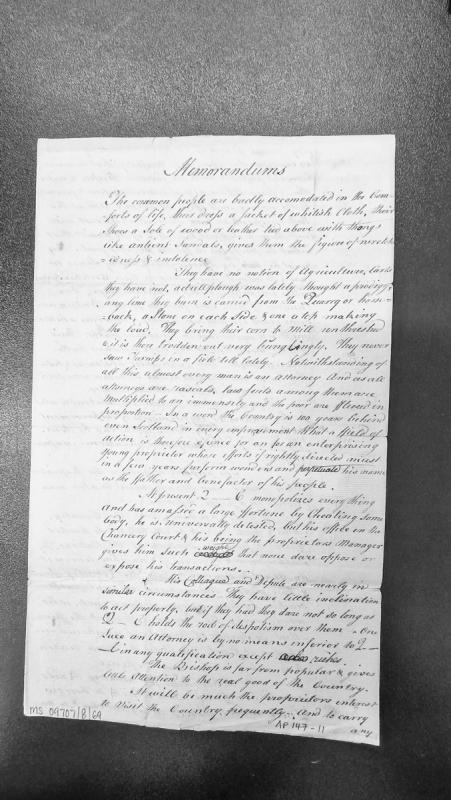 Memorandums
The common people are badly accomodated in the Com=
forts of life, their dress a jacket of whitish Cloth, their
Shoes a Sole of wood or leather tied above with thongs
like antient Sandals, gives them the figure of wretch=
=edness & indolence
They have no notion of Agriculture, Carts
they have not, a drill plough was lately thought a prodigy,
any lime they burn is carried from the Quarry on horse=
=back, a stone on each side & one a top making
the load. They bring their corn to Mill unthreshed
& it is then trodden out very bunglingly. They never
saw Turnips in a field till lately. Notwithstanding of
all this almost every man is an attorney And as all
attorneys are rascals, law suits among them are
multiplied to an immensity and the poor are fleeced in
proportion - In a word the Country is 100 years behind
even Scotland in every improvement What a field of
action is therefore open for an enterprising
young proprietor whose efforts if rightly directed must
in a few years perform wonders and perpetuate his name
as the father and benefactor of his people.
At present Q — C monopolizes every thing
and has amassed a large fortune by Cheating some
body, he is universally detested, but his office in the
Chancery Court & his being the proprietors Manager
gives him such weight that none dare oppose or
expose his transactions.
His Colleague and Depute are nearly in
similar circumstances They have little inclination
to act properly, but if they had they dare not so long as
Q — C holds the rod of despotism over them - One
an Attorney is by no means inferior to Q —
— C in any qualification except riches.
The Bishop is far from popular & gives
little attention to the real good of the Country.
It will be much the proprietors interest
to visit the Country frequently. And to carry
any
MS 09707/8/69
AP 147-11